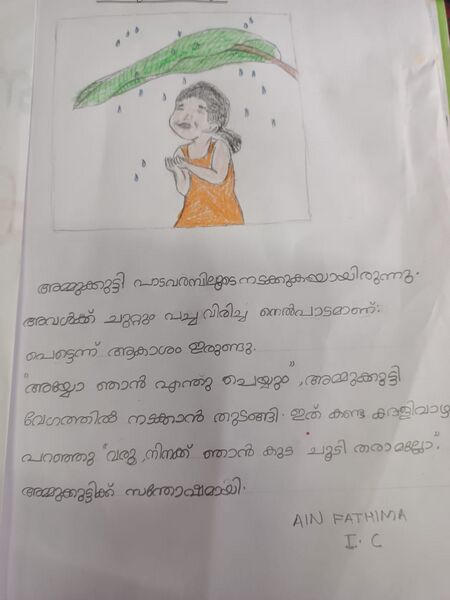 അമ്മുക്കുട്ടി പാടവരമ്പിലൂടെ നടക്കുകയായിരുന്നു.
അവൾക്ക് ചുറ്റും പച്ച വിരിച്ച നെൽപാടമാണ്.
പെട്ടെന്ന് ആകാശം ഇരുണ്ടു.
"അയ്യോ ഞാൻ എന്തു ചെയ്യും", അമ്മുക്കുട്ടി
വേഗത്തിൽ നടക്കാൻ തുടങ്ങി. ഇത് കണ്ട കദളിവാഴ
പറഞ്ഞു "വരൂ, നിനക്ക് ഞാൻ കുട ചൂടി തരാമല്ലോ".
അമ്മുക്കുട്ടിക്ക് സന്തോഷമായി.
AIN FATHIMA
I. C